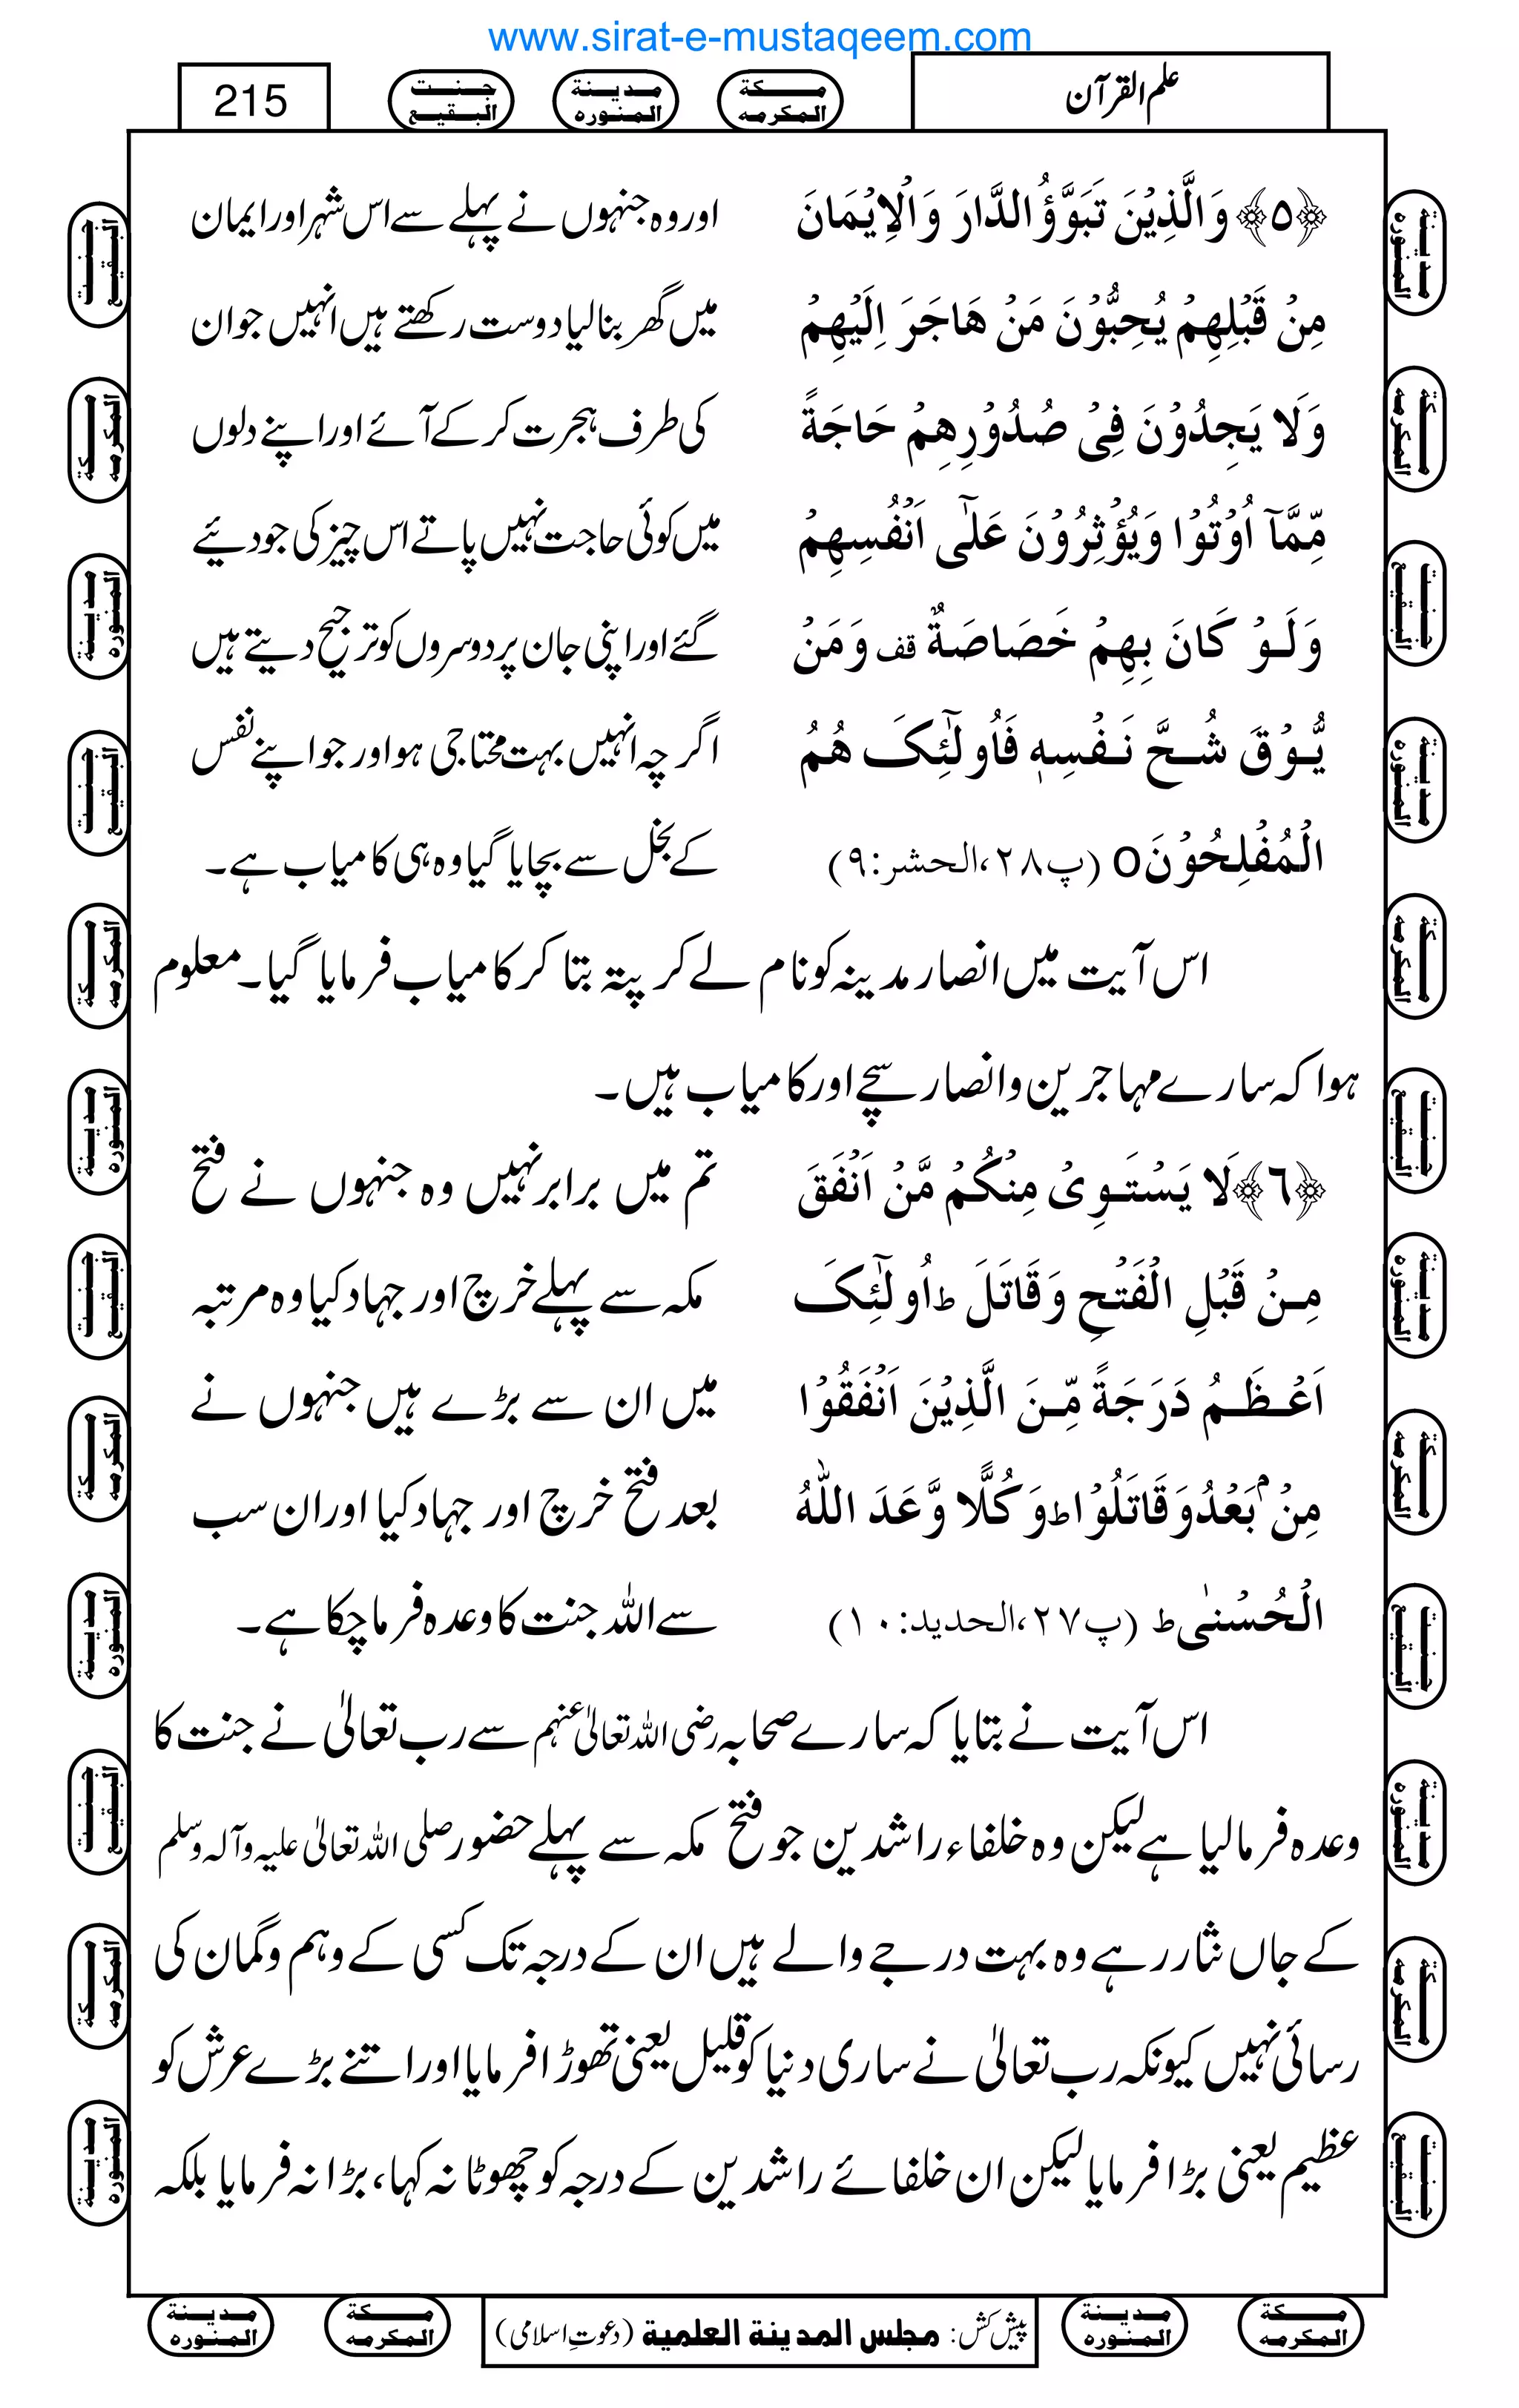 www.sirat-e-mustaqeem.com
علم القرآن
مكة المكرمه
مدينة المنوره
جنت البقيع
215
﴿٥﴾ وَالَّذِیۡنَ تَبَوَّؤُ الدَّارَ وَالۡاِیۡمَانَ
اور وہ جنہوں نے پہلے سے اس شہر اور ایمان
مِنۡ قَبۡلِهِمۡ یُحِبُّوۡنَ مَنۡ هَاجَرَ اِلَیۡهِمۡ
میں گھر بنا لیا دوست رکھتے ہیں انہیں جو ان
وَلَا یَجِدُوۡنَ فِیۡ صُدُوۡرِهِمۡ حَاجَةً
کی طرف ہجرت کر کے آئے اور اپنے دلوں
مِّمَّاۤ اُوۡتُوۡا وَیُؤۡثِرُوۡنَ عَلٰۤی اَنۡفُسِهِمۡ
میں کوئی حاجت نہیں پاتے اس چیز کی جو دیئے
وَلَوۡ کَانَ بِهِمۡ خَصَاصَةٌ قف وَمَنۡ
گئے اور اپنی جان پر دوسروں کو ترجیح دیتے ہیں
یُّوۡقَ شُحَّ نَفۡسِهٖ فَاُولٰٓئِکَ هُمُ
اگر چہ انہیں بہت محتاجی ہو اور جو اپنے نفس
الۡمُفۡلِحُوۡنَ0 (پ٢٨،الحشر:٩)
کے بخل سے بچایا گیا وہ ہی کامیاب ہے۔
اس آیت میں انصار مدینہ کو نام لے کر پتہ بتا کر کامیاب فرمایا گیا۔ معلوم
ہوا کہ سارے مہاجرین و انصار سچے اور کامیاب ہیں۔
﴿٦﴾ لَا یَسۡتَوِیۡ مِنۡکُمۡ مَّنۡ اَنۡفَقَ
تم میں برابر نہیں وہ جنہوں نے فتح
مِنۡ قَبۡلِ الۡفَتۡحِ وَقَاتَلَ ط اُولٰٓئِکَ
مکہ سے پہلے خرچ اور جہاد کیا وہ مرتبہ
اَعۡظَمُ دَرَجَةً مِّنَ الَّذِیۡنَ اَنۡفَقُوۡا
میں ان سے بڑے ہیں جنہوں نے
مِنۡۢ بَعۡدُ وَقَاتَلُوۡا ط وَکُلًّا وَّعَدَ اللّٰهُ
بعد فتح خرچ اور جہاد کیا اور ان سب
الۡحُسۡنٰی ط (پ٢٧،الحدید:١٠)
سے اللہ جنت کا وعدہ فرما چکا ہے۔
اس آیت نے بتایا کہ سارے صحابہ رضی اللہ تعالیٰ عنہم سے رب تعالیٰ نے جنت کا
وعدہ فرما لیا ہے لیکن وہ خلفاء راشدین جو فتح مکہ سے پہلے حضور صلی اللہ تعالیٰ علیہ وآلہ وسلم
کے جاں نثار رہے وہ بہت درجے والے ہیں ان کے درجہ تک کسی کے وہم و گمان کی
رسائی نہیں کیونکہ رب تعالیٰ نے ساری دنیا کو قلیل یعنی تھوڑا فرمایا اور اتنے بڑے عرش کو
عظیم یعنی بڑا فرمایا لیکن ان خلفائے راشدین کے درجہ کو چھوٹا نہ کہا، بڑا نہ فرمایا بلکہ
مكة المكرمه
مدينة المنوره
پیش کش: مجلس المدينة العلمية (دعوتِ اسلامی)
مكة المكرمه
مدينة المنوره